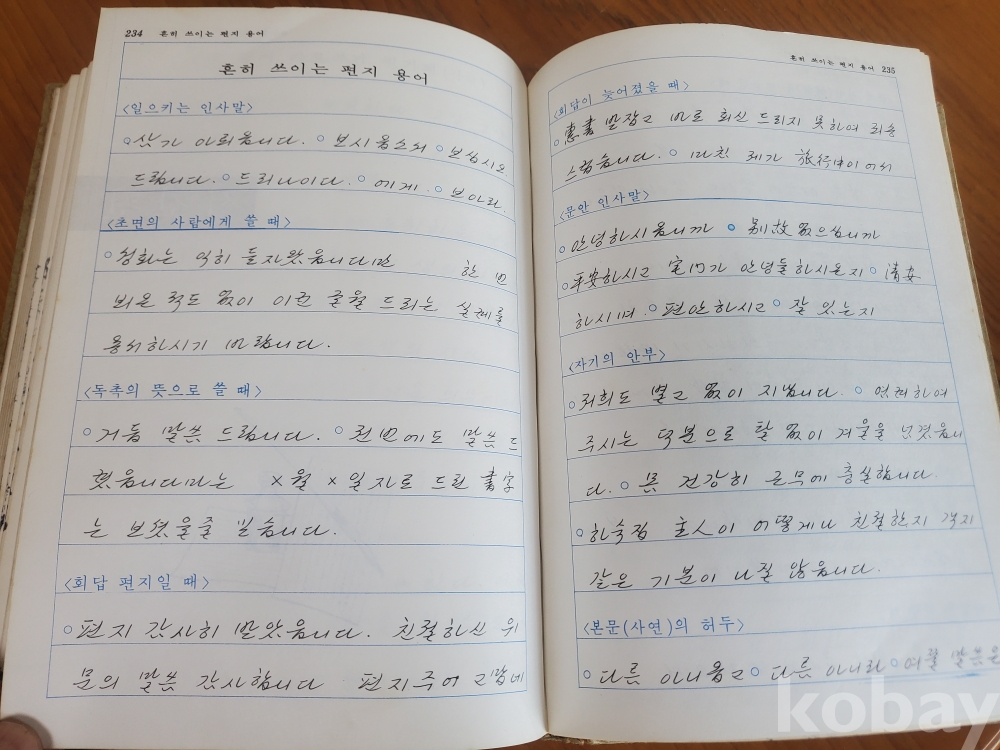 234 흔히 쓰이는 편지 용어
흔히 쓰이는 편지 용어
<일으키는 인사말>
○ 삼가 아뢰옵니다. ○ 보시옵소서 ○ 보십시오
드립니다. ○ 드리나이다. ○ 에게. ○ 보아라.
<초면의 사람에게 쓸 때>
○ 성화는 익히 들자왔읍니다만 한 번
뵈온 적도 없이 이런 글월 드리는 실례를
용서하시기 바랍니다.
<독촉의 뜻으로 쓸 때>
○ 거듭 말씀 드립니다. ○ 전번에도 말씀드
렸읍니다마는 ×월 ×일자로 드린 書字
는 보셨을줄 믿습니다.
<회답 편지일 때>
○ 편지 감사히 받았읍니다. 친절하신 위
문의 말씀 감사합니다 편지주어 고맙네
흔히 쓰이는 편지 용어 235
<회답이 늦어졌을 때>
○ 惠書 받잡고 바로 회신 드리지 못하여 죄송
스럽습니다. ○ 마친 제가 旅行中이어서
<문안 인사말>
○ 안녕하시옵니까 ○ 別故 없으십니까
平安하시고 宅内가 안녕들하시온지 ○ 淸安
하시며. ○ 편안하시고 ○ 잘 있는지
<자기의 안부>
○ 저희도 별고 없이 지냅니다. ○ 염려하여
주시는 덕분으로 탈 없이 겨울을 넘겼읍니
다. ○ 건강히 근무에 충실합니다.
○ 하숙집 主人이 어떻게나 친절한지 객지
같은 기분이 나질 않읍니다.
<본문(사연)의 허두>
○ 다름 아니옵고 ○ 다름 아니라 ○ 여쭐 말씀은
kobay